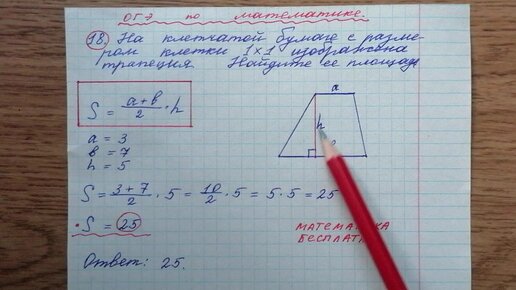 ОГЭ по математике
18. На клетчатой бумаге с разме-
ром клетки 1×1 изображена
трапеция. Найдите её площадь
S = a+b/2 · h
a = 3
b = 7
h = 5
a
h
S = 3+7/2 · 5 = 10/2 · 5 = 5·5 = 25
S = 25
МАТЕМАТИКА
БЕСПЛАТ
Ответ: 25.